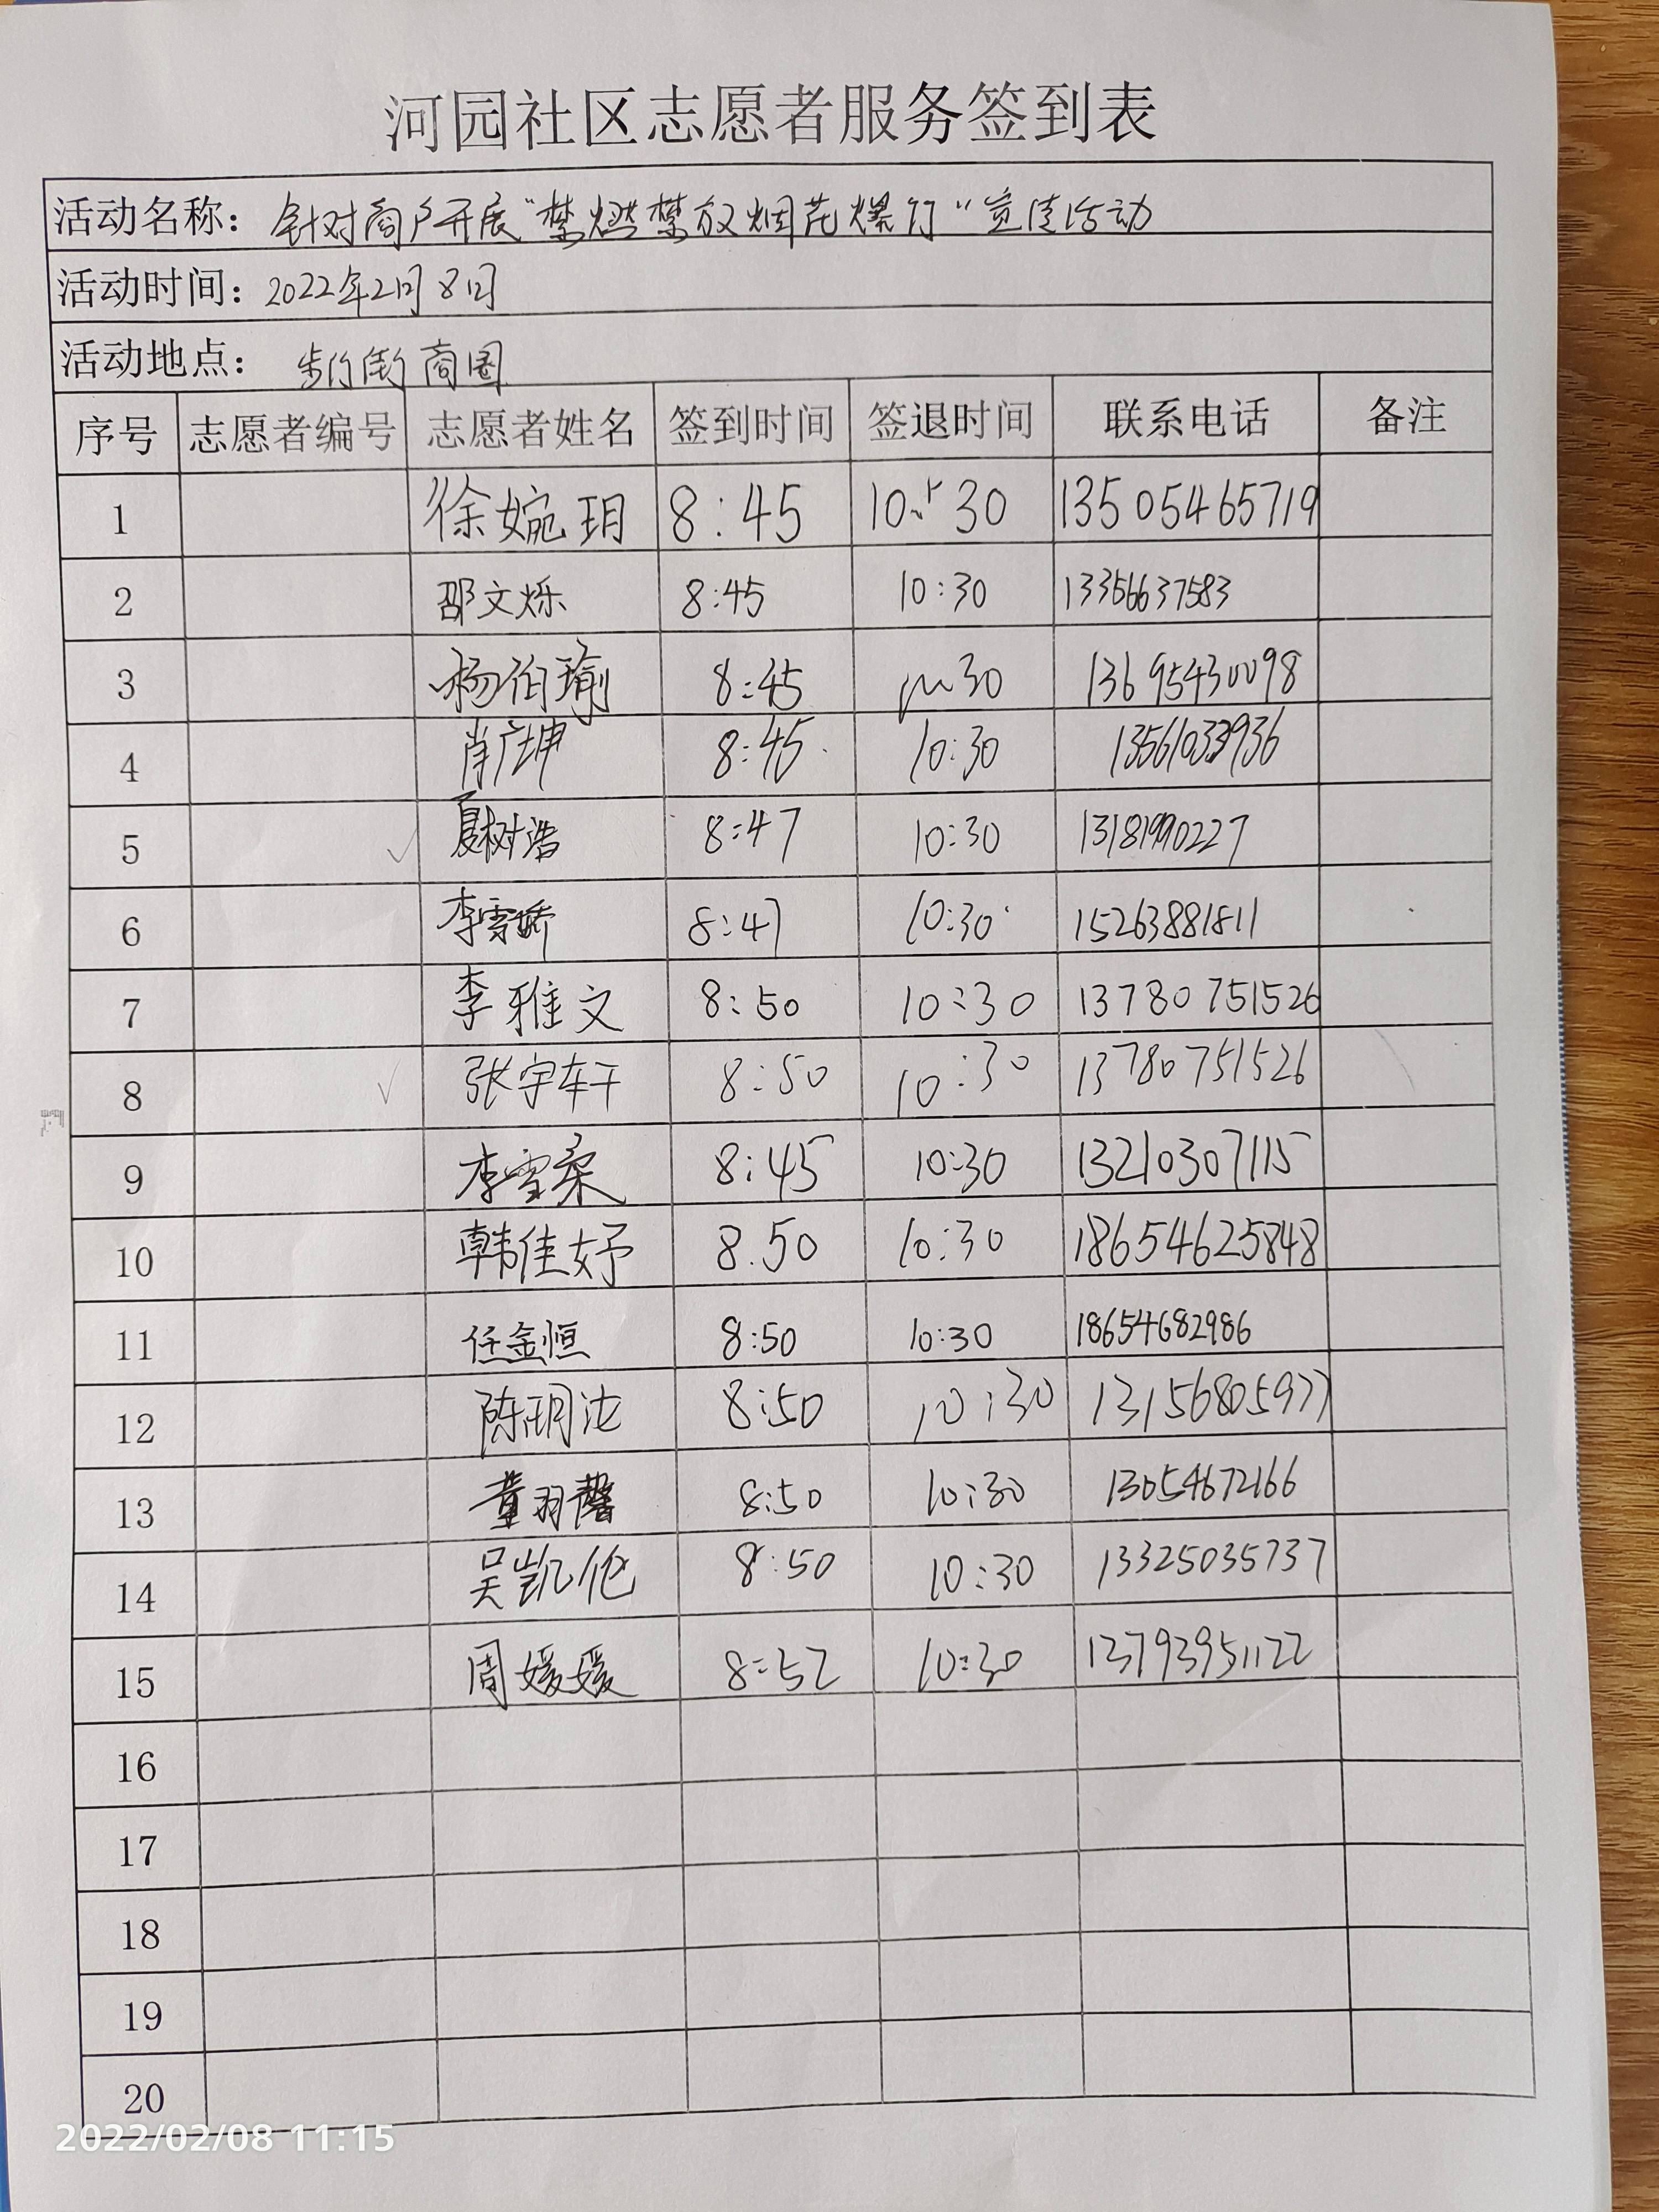 河园社区志愿者服务签到表
活动名称：针对商户开展"禁燃禁放烟花爆竹"宣传活动
活动时间：2022年2月8日
活动地点：步行街商圈
序号 志愿者编号 志愿者姓名 签到时间 签退时间 联系电话 备注
1 徐婉玥 8:45 10:30 13505465719
2 邵文烁 8:45 10:30 13356637583
3 杨伯瑜 8:45 30 13695430098
4 肖广坤 8:45 10:30 13561033936
5 ✓ 夏树浩 8:47 10:30 13181990227
6 李雪娇 8:47 10:30 15263881811
7 李雅文 8:50 10:30 13780751526
8 ✓ 张宇轩 8:50 10:30 13780751526
9 李雪柔 8:45 10:30 13210307115
10 韩佳妤 8.50 10:30 18654625848
11 任金恒 8:50 10:30 18654682986
12 8:50 10:30 13156805977
13 董羽馨 8:50 10:30 13054672166
14 吴凯伦 8:50 10:30 13325035737
15 周媛媛 8:52 10:30 13793951122
16
17
18
19
20
2022/02/08 11:15